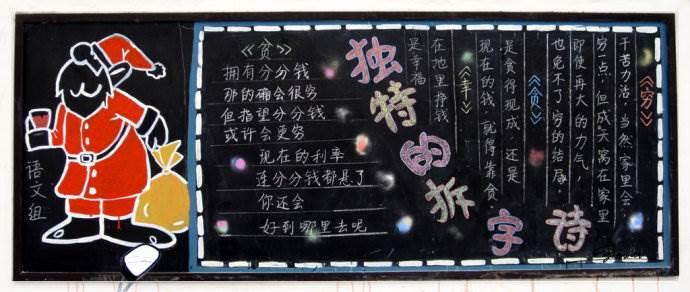 语文组
《贫》
拥有分分钱
那的确会很穷
但指望分分钱
或许会更穷
现在的利率
连分分钱都悬了
你还会
好到哪里去呢
独特的拆字诗
《穷》
干苦力活，当然家里会
穷一点，但成天窝在家里
即使再大的力气，
也免不了穷的结局。
《贪》
是贪得现成 还是
现在的钱，就得靠贪。
《幸》
在地里挣钱
是幸福